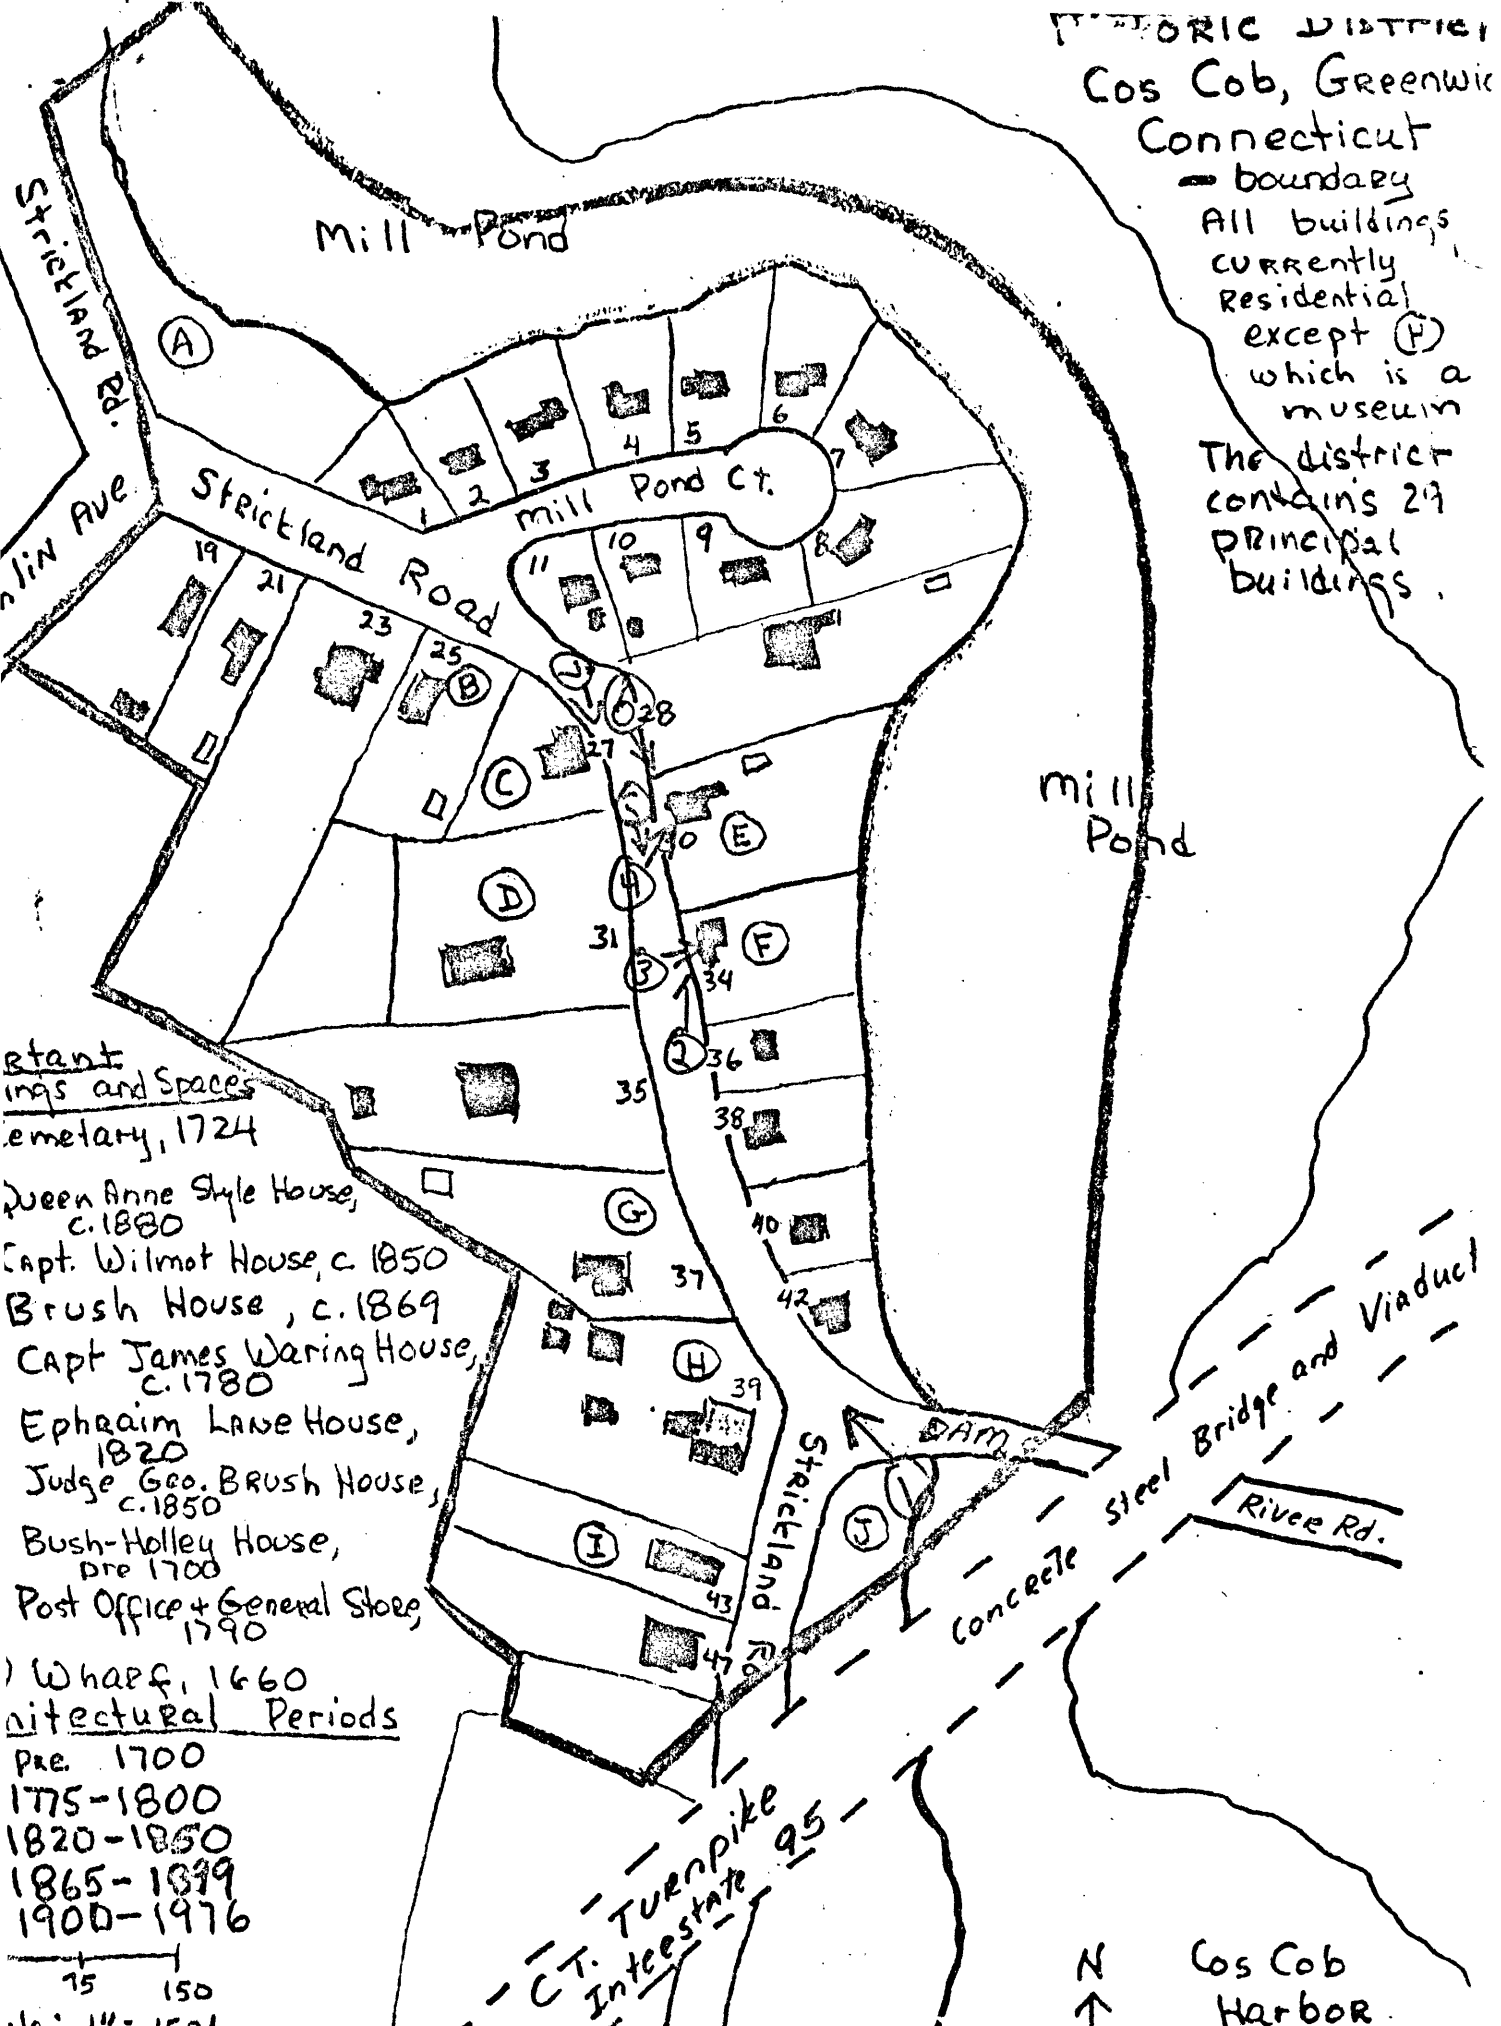 ORIC DISTRICT
Cos Cob, Greenwic
Connecticut
boundary
All buildings
currently
Residential
except (H)
which is a
museum
The district
contains 29
principal
buildings.
Mill Pond
Strickland Rd.
A
Strickland Road
Mill Pond Ct.
1
2
3
4
5
6
7
8
9
10
11
lin Ave
19
21
23
25
B
C
27
28
E
D
4
31
3
F
34
2
36
35
38
G
40
37
42
H
39
I
43
47
J
1
Mill
Pond
DAM
Strickland Rd
River Rd.
Concrete Steel Bridge and Viaduct
C T. Turnpike
Interstate 95
rtant
ings and Spaces
emetary, 1724
Queen Anne Style House,
c. 1880
Capt. Wilmot House, c. 1850
Brush House, c. 1869
Capt James Waring House,
c. 1780
Ephraim Lane House,
1820
Judge Geo. Brush House,
c. 1850
Bush-Holley House,
pre 1700
Post Office + General Store,
1790
) Wharf, 1660
hitectural Periods
Pre. 1700
1775-1800
1820-1850
1865-1899
1900-1976
75 150
N
Cos Cob
Harbor